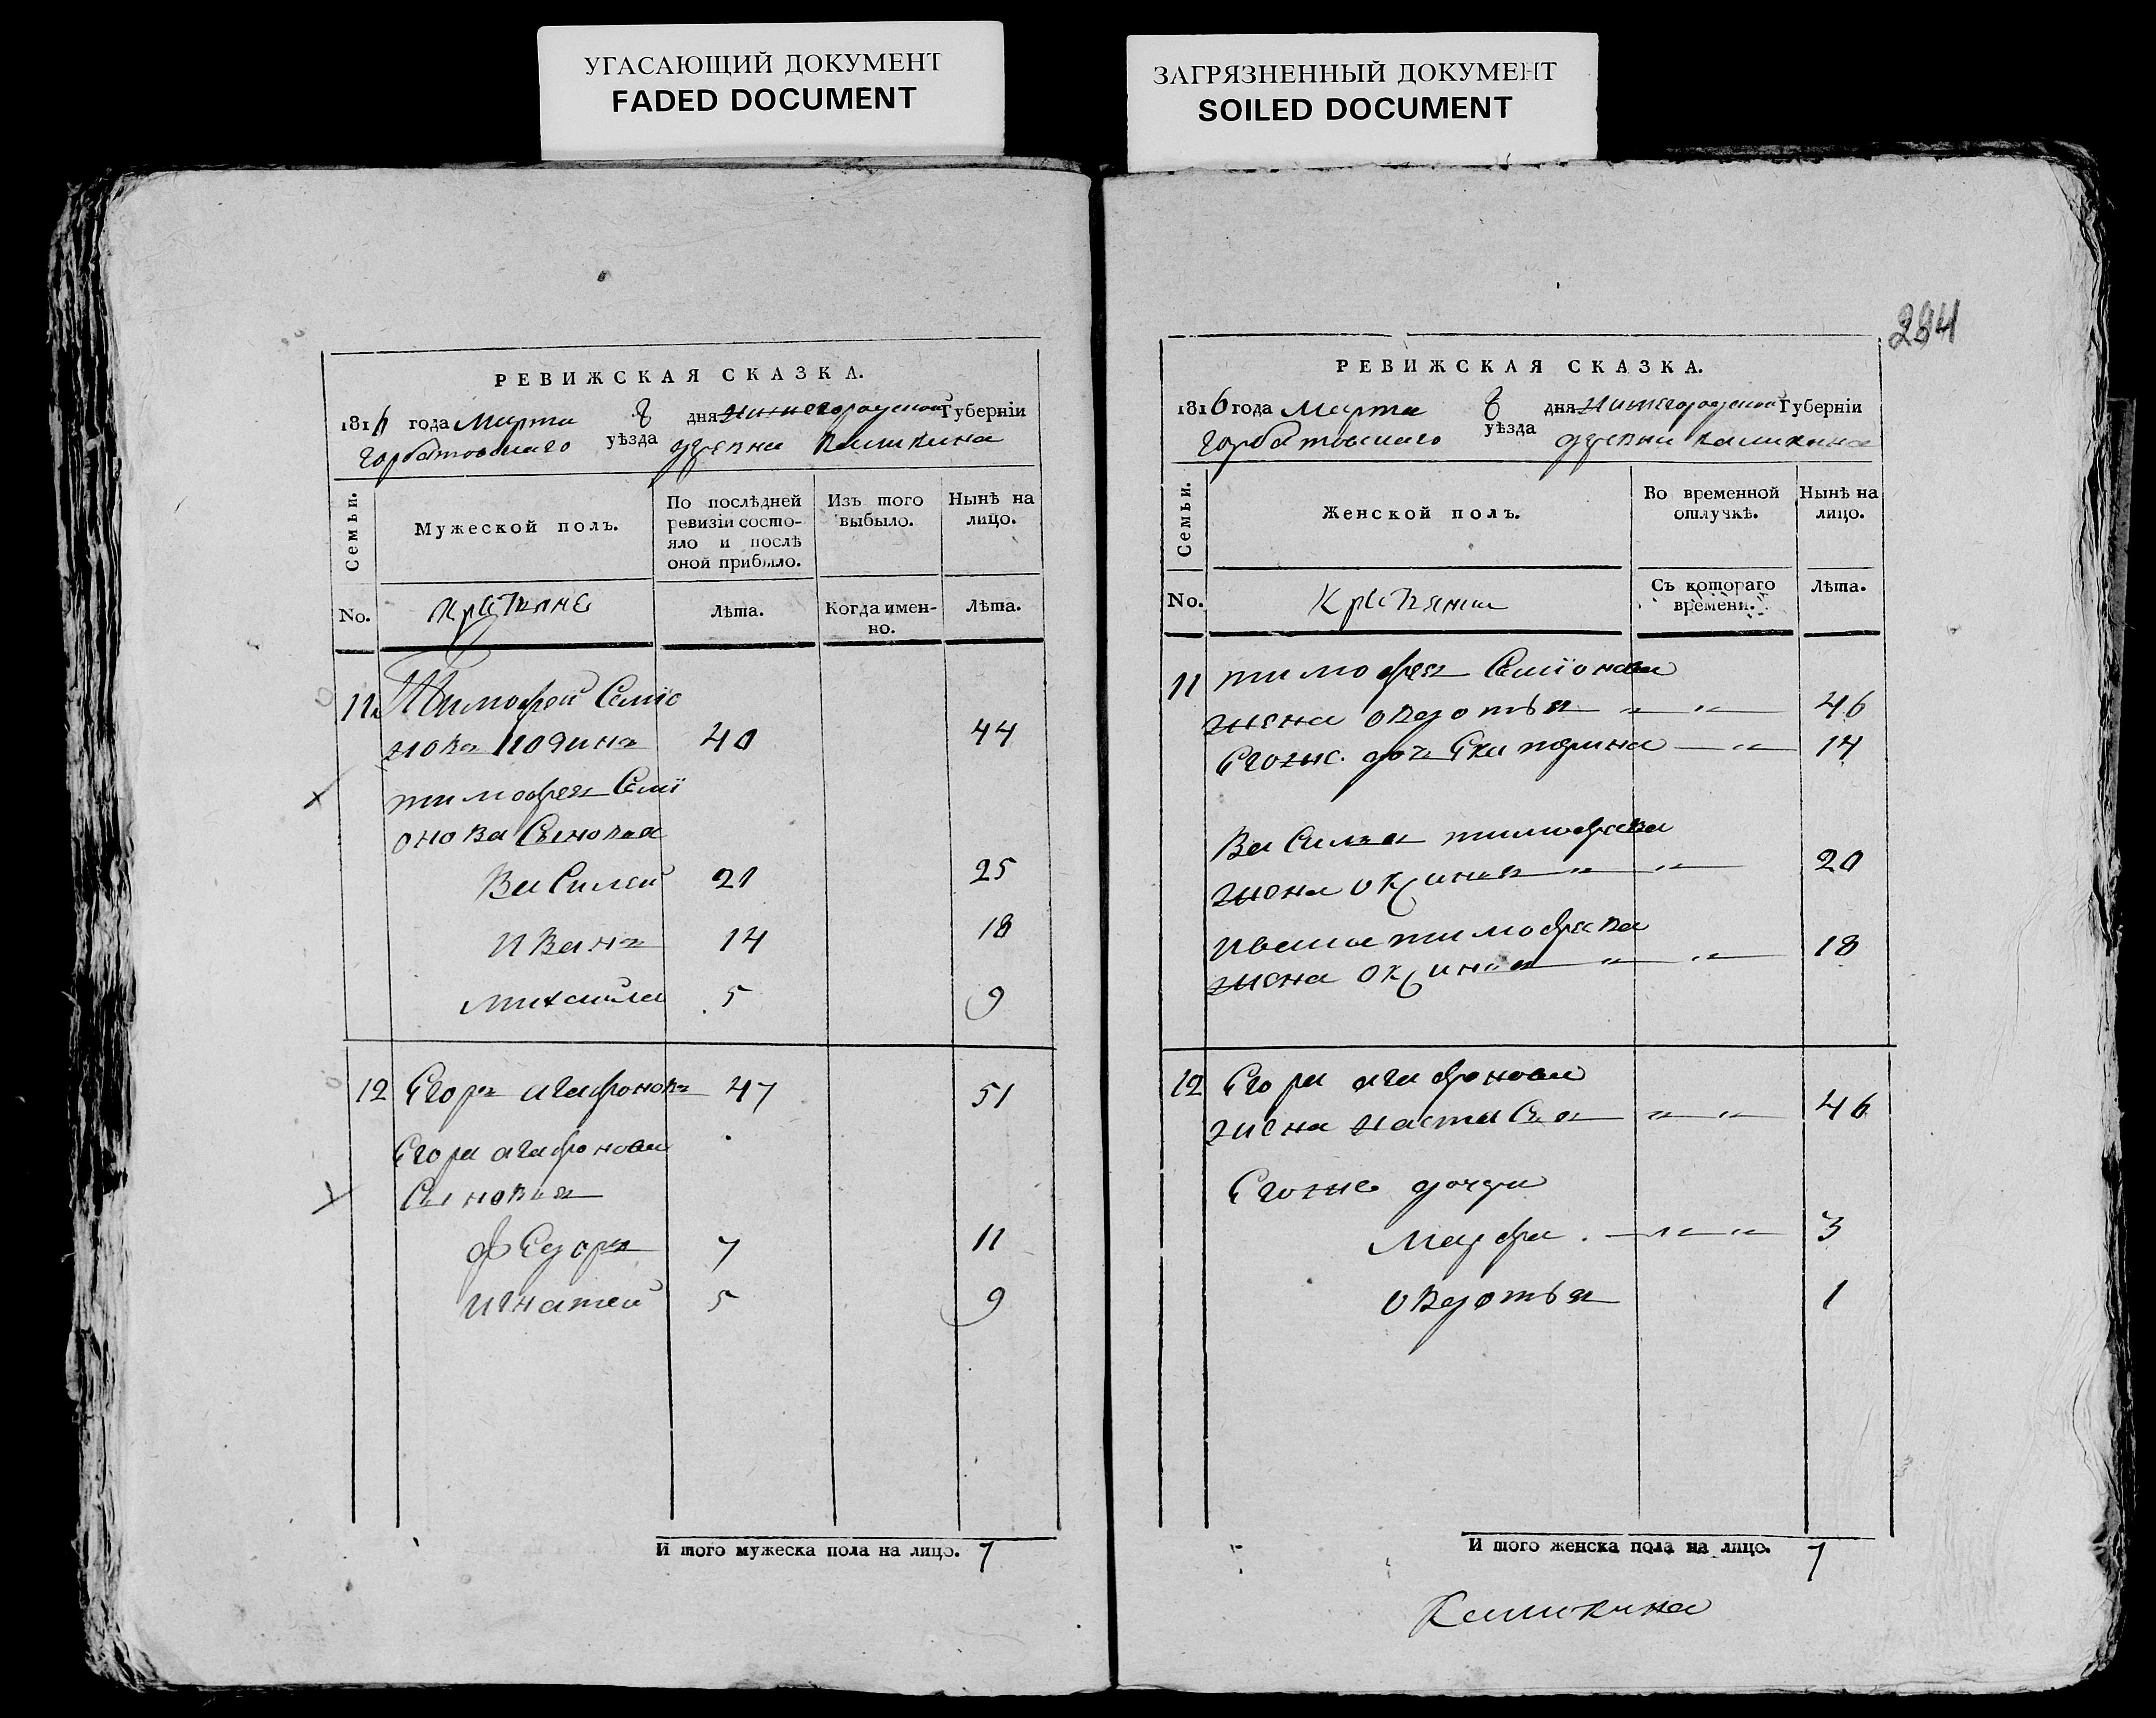 УГАСАЮЩИЙ ДОКУМЕНТ
FADED DOCUMENT
ЗАГРЯЗНЕННЫЙ ДОКУМЕНТ
SOILED DOCUMENT
РЕВИЖСКАЯ СКАЗКА.
1816 года Марта 8 дня Нижегородской Губерніи
Горбатовскаго уѣзда деревни Кашкина
Семьи.
Мужеской полъ.
По послѣдней ревизіи состояло и послѣ оной прибыло.
Изъ того выбыло.
Нынѣ на лицо.
No.
крестьяне
Лѣта.
Когда именно.
Лѣта.
11 Тимофей Семіо
новъ 40 44
тимофея Семі
онова Сыновья
Василей 21 25
иванъ 14 18
михайла 5 9
12 Егоръ агафоновъ 47 51
Егора агафонова
Сыновья
федоръ 7 11
игнатей 5 9
И того мужеска пола на лицо. 7
284
РЕВИЖСКАЯ СКАЗКА.
1816 года Марта 8 дня Нижегородской Губерніи
Горбатовскаго уѣзда деревни Кашкина
Семьи.
Женской полъ.
Во временной отлучкѣ.
Нынѣ на лицо.
No.
Крестьянки
Съ котораго времени.
Лѣта.
11 тимофея Семіонова
жена овдотья 46
Егоже дочь Екатерина 14
Василья тимофеева
жена оксинья 20
ивана тимофеева
жена оксинья 18
12 Егора агафонова
жена настасья 46
Егоже дочери
Мавра 3
овдотья 1
И того женска пола на лицо. 7
Кашкина